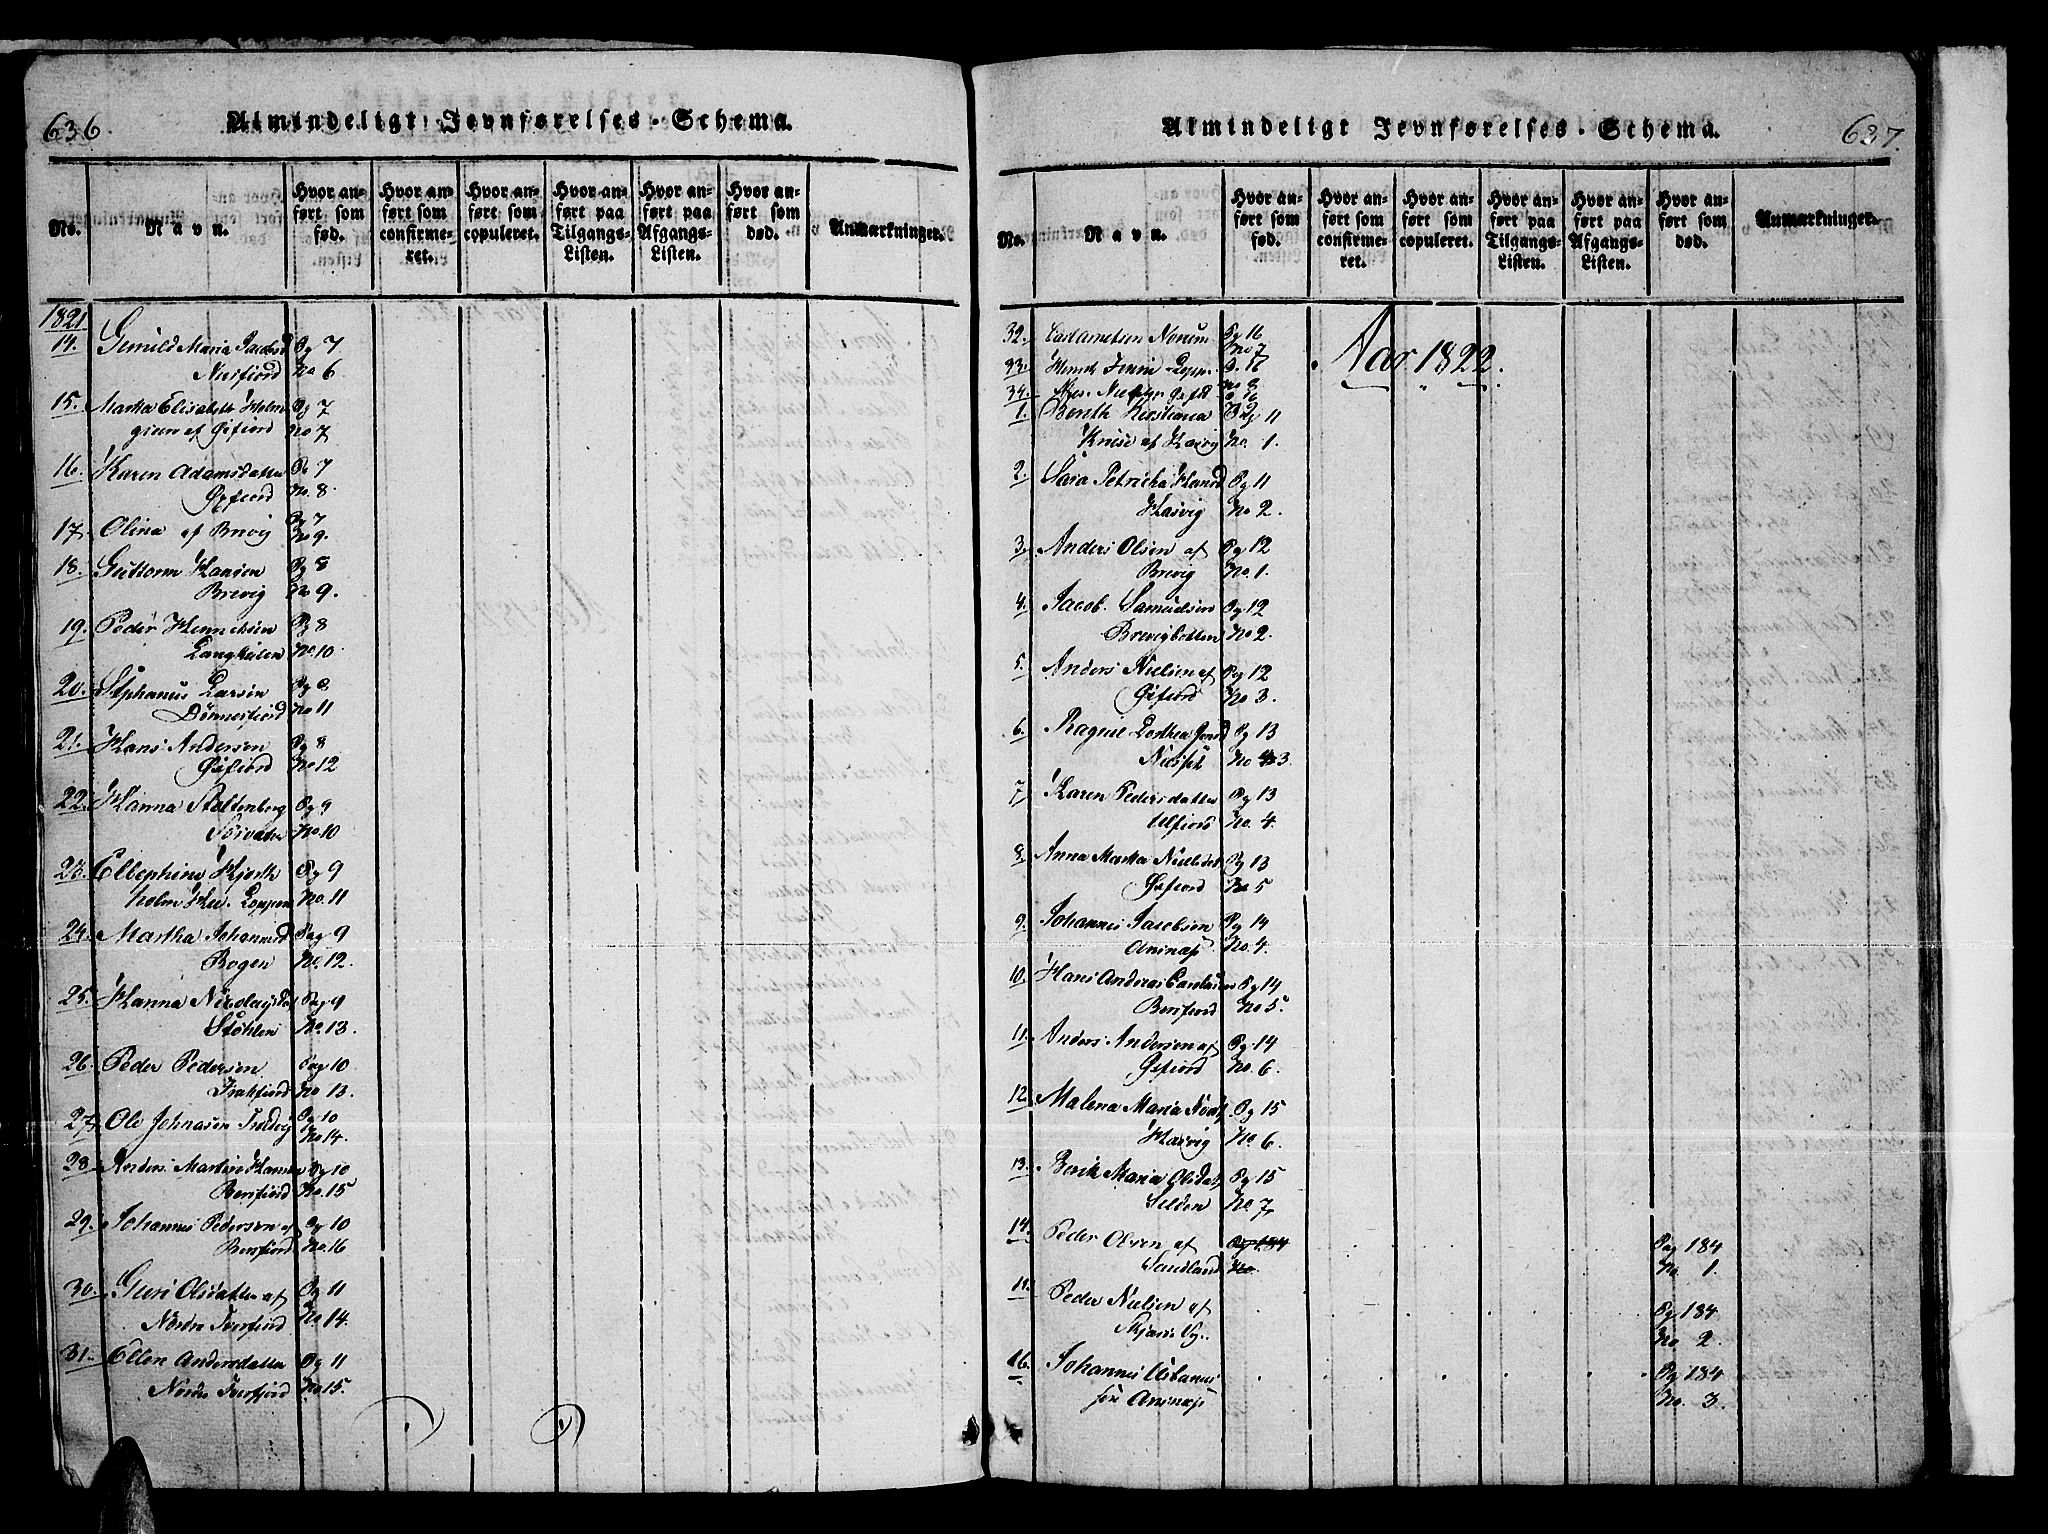 636.
Almindeligt Jevnførelses-Schema.
No.
Navn.
Hvor an-
ført som
fød.
Hvor an-
ført som
confirme-
ret.
Hvor an-
ført som
copuleret.
Hvor an-
ført paa
Tilgangs-
Listen.
Hvor an-
ført paa
Afgangs-
Listen.
Hvor an-
ført som
død.
Anmærkninger.
1821
14. Gunild Maria Jacobsd Pg 7
Nusfiord No 6.
15. Martha Elisabeth Holm Pg 7
green af Øxfiord No 7
16. Karen Adamsdatter Pg 7
Øxfiord No. 8.
17. Olina af Brevig Pg 7
No 9.
18. Guttorm Hansen Pg 8
Brevig No 9.
19. Peder Henrichsen Pg 8
Langkeilen No. 10
20. Stephanus Larsen Pg 8
Dønnesfiord No 11
21. Hans Andersen Pg 8
Øxfiord No 12
22. Hanna Stoltenberg Pg 9
Sørvær No. 10
23. Ellephine Kjerst Pg 9
holm Loppen No. 11
24. Martha Johannesd Pag 9
Bogen No. 12.
25. Hanna Nicolaysdat Pag 9
Støhlen No. 13.
26. Peder Pedersen Pag 10
Frakfiord No 13.
27. Ole Johnasen Pg 10
No 14.
28. Anders Martin Hansen Pg 10
Bersfiord No. 15
29. Johannes Pedersen af Pg 10
Bersfiord No. 16
30. Guri Olsdatter af Pg 11
Nordre Tverfiord No 14.
31. Ellen Andersdatter Pg 11
Nordre Tverfiord No 15.
637.
Almindeligt Jevnførelses-Schema.
No.
Navn.
Hvor an-
ført som
fød.
Hvor an-
ført som
confirme-
ret.
Hvor an-
ført som
copuleret.
Hvor an-
ført paa
Tilgangs-
Listen.
Hvor an-
ført paa
Afgangs-
Listen.
Hvor an-
ført som
død.
Anmærkninger.
32. Norum Pg 16
No 7
33. Lopp. P. 16
No 8
34. P. 16
Aar 1822.
1. Berith Kirstianea Pag 11
Kruse af Hasvig No. 1.
2. Sara Petricka Hansd Pg 11
Hasvig No 2.
3. Anders Olsen af Pg 12
Brevig No. 1.
4. Jacob Samuelsen Pg 12
Brevigbotten No 2.
5. Anders Nielsen af Pg 12
Øxfiord No 3.
6. Ragnil Dorthea Pg 13
No 3.
7 Karen Pedersdatter Pg 13
Ulfiord No. 4.
8. Anna Martha Nielsdat Pg 13
Øxfiord No 5
9. Johannes Jacobsen Pg 14
Arsnæs No. 4.
10. Hans Andreas Carelsen Pg 14
Bersfiord No 5.
11. Anders Andersen af Pg 14
Øxfiord No. 6.
12. Malena Maria Pg 15
Hasvig No. 6.
13. Berith Maria Olsdat Pg 15
Silden No. 7.
14. Peder Olsen af Pg 184 Pag 184
Sandland No. No. 1.
15. Peder Nielsen af Pg 184
No 2.
16. Johannes Urbanus Pg 184
sen Arsnæs No. 3.